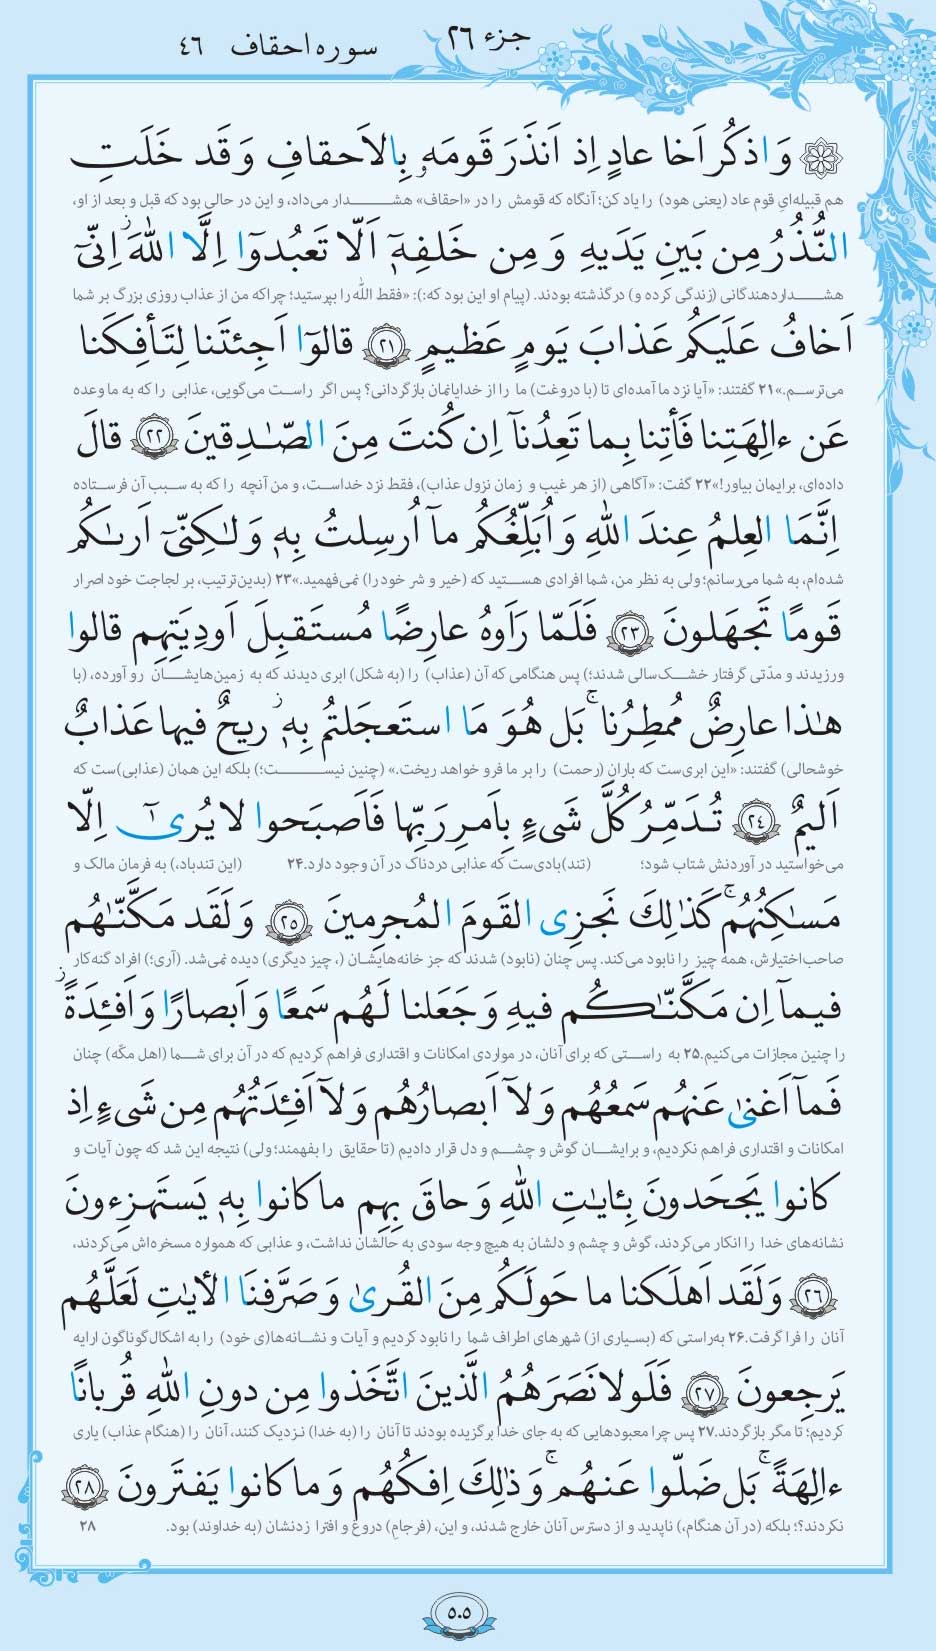 جزء ۲۶ سوره احقاف ۴۶
وَاذكُر اَخا عادٍ اِذ اَنذَرَ قَومَهٗ بِالاَحقافِ وَ قَد خَلَتِ
هم قبیله‌ایِ قوم عاد (یعنی هود) را یاد کن؛ آنگاه که قومش را در «احقاف» هشدار می‌داد، و این در حالی بود که قبل و بعد از او،
النُّذُرُ مِن بَينِ يَدَيهِ وَ مِن خَلفِهٖٓ اَلّا تَعبُدوٓا اِلَّا اللهَ ز اِنّىٓ
هشداردهندگانی (زندگی کرده و) درگذشته بودند. (پیام او این بود که:): «فقط الله را بپرستید؛ چراکه من از عذاب روزی بزرگ بر شما
اَخافُ عَلَيكُم عَذابَ يَومٍ عَظيمٍ ﴿۲۱﴾ قالوٓا اَجِئتَنا لِتَأفِكَنا
می‌ترسم.»۲۱ گفتند: «آیا نزد ما آمده‌ای تا (با دروغت) ما را از خدایانمان بازگردانی؟ پس اگر راست می‌گویی، عذابی را که به ما وعده
عَن ءالِهَتِنا فَأتِنا بِما تَعِدُنآ اِن كُنتَ مِنَ الصّٰدِقينَ ﴿۲۲﴾ قالَ
داده‌ای، برایمان بیاور!»۲۲ گفت: «آگاهی (از هر غیب و زمان نزول عذاب)، فقط نزد خداست، و من آنچه را که به سبب آن فرستاده
اِنَّمَا العِلمُ عِندَ اللهِ وَ اُبَلِّغُكُم مآ اُرسِلتُ بِهٖ وَ لٰكِنّىٓ اَرىٰكُم
شده‌ام، به شما می‌رسانم؛ ولی به نظر من، شما افرادی هستید که (خیر و شر خود را) نمی‌فهمید.»۲۳ (بدین‌ترتیب، بر لجاجت خود اصرار
قَومًا تَجهَلونَ ﴿۲۳﴾ فَلَمّا رَاَوهُ عارِضًا مُستَقبِلَ اَودِيَتِهِم قالوا
ورزیدند و مدّتی گرفتار خشک‌سالی شدند؛) پس هنگامی که آن (عذاب) را (به شکل) ابری دیدند که به زمین‌هایشان رو آورده، (با
هٰذا عارِضٌ مُمطِرُنا ج بَل هُوَ مَا استَعجَلتُم بِهٖ ز ريحٌ فيها عَذابٌ
خوشحالی) گفتند: «این ابری‌ست که باران (رحمت) را بر ما فرو خواهد ریخت.» (چنین نیست؛) بلکه این همان (عذابی)ست که
اَليمٌ ﴿۲۴﴾ تُدَمِّرُ كُلَّ شَىءٍ بِاَمرِ رَبِّها فَاَصبَحوا لا يُرىٰٓ اِلّا
می‌خواستید در آوردنش شتاب شود؛ (تند)بادی‌ست که عذابی دردناک در آن وجود دارد.۲۴ (این تندباد،) به فرمان مالک و
مَسٰكِنُهُم ج كَذٰلِكَ نَجزِى القَومَ المُجرِمينَ ﴿۲۵﴾ وَ لَقَد مَكَّنّٰهُم
صاحب‌اختیارش، همه چیز را نابود می‌کند. پس چنان (نابود) شدند که جز خانه‌هایشان (، چیز دیگری) دیده نمی‌شد. (آری؛) افراد گنه‌کار
فيمآ اِن مَكَّنّٰكُم فيهِ وَ جَعَلنا لَهُم سَمعًا وَ اَبصارًا وَ اَفـِٔدَةً ز
را چنین مجازات می‌کنیم.۲۵ به راستی که برای آنان، در مواردی امکانات و اقتداری فراهم کردیم که در آن برای شما (اهل مکّه) چنان
فَمآ اَغنىٰ عَنهُم سَمعُهُم وَ لآ اَبصارُهُم وَ لآ اَفـِٔدَتُهُم مِن شَىءٍ اِذ
امکانات و اقتداری فراهم نکردیم، و برایشان گوش و چشم و دل قرار دادیم (تا حقایق را بفهمند؛ ولی) نتیجه این شد که چون آیات و
كانوا يَجحَدونَ بِـٔايٰتِ اللهِ وَ حاقَ بِهِم ما كانوا بِهٖ يَستَهزِءونَ
نشانه‌های خدا را انکار می‌کردند، گوش و چشم و دلشان به هیچ وجه سودی به حالشان نداشت، و عذابی که همواره مسخره‌اش می‌کردند،
﴿۲۶﴾ وَ لَقَد اَهلَكنا ما حَولَكُم مِنَ القُرىٰ وَ صَرَّفنَا الـٔايٰتِ لَعَلَّهُم
آنان را فرا گرفت.۲۶ به‌راستی که (بسیاری از) شهرهای اطراف شما را نابود کردیم و آیات و نشانه‌ها(ی خود) را به اشکال گوناگون ارایه
يَرجِعونَ ﴿۲۷﴾ فَلَولا نَصَرَهُمُ الَّذينَ اتَّخَذوا مِن دونِ اللهِ قُربانًا
کردیم؛ تا مگر بازگردند.۲۷ پس چرا معبودهایی که به جای خدا برگزیده بودند تا آنان را (به خدا) نزدیک کنند، آنان را (هنگام عذاب) یاری
ءالِهَةً ج بَل ضَلّوا عَنهُم ج وَ ذٰلِكَ اِفكُهُم وَ ما كانوا يَفتَرونَ ﴿۲۸﴾
نکردند؟؛ بلکه (در آن هنگام،) ناپدید و از دسترس آنان خارج شدند، و این، (فرجامِ) دروغ و افترا زدنشان (به خداوند) بود. ۲۸
۵۰۵